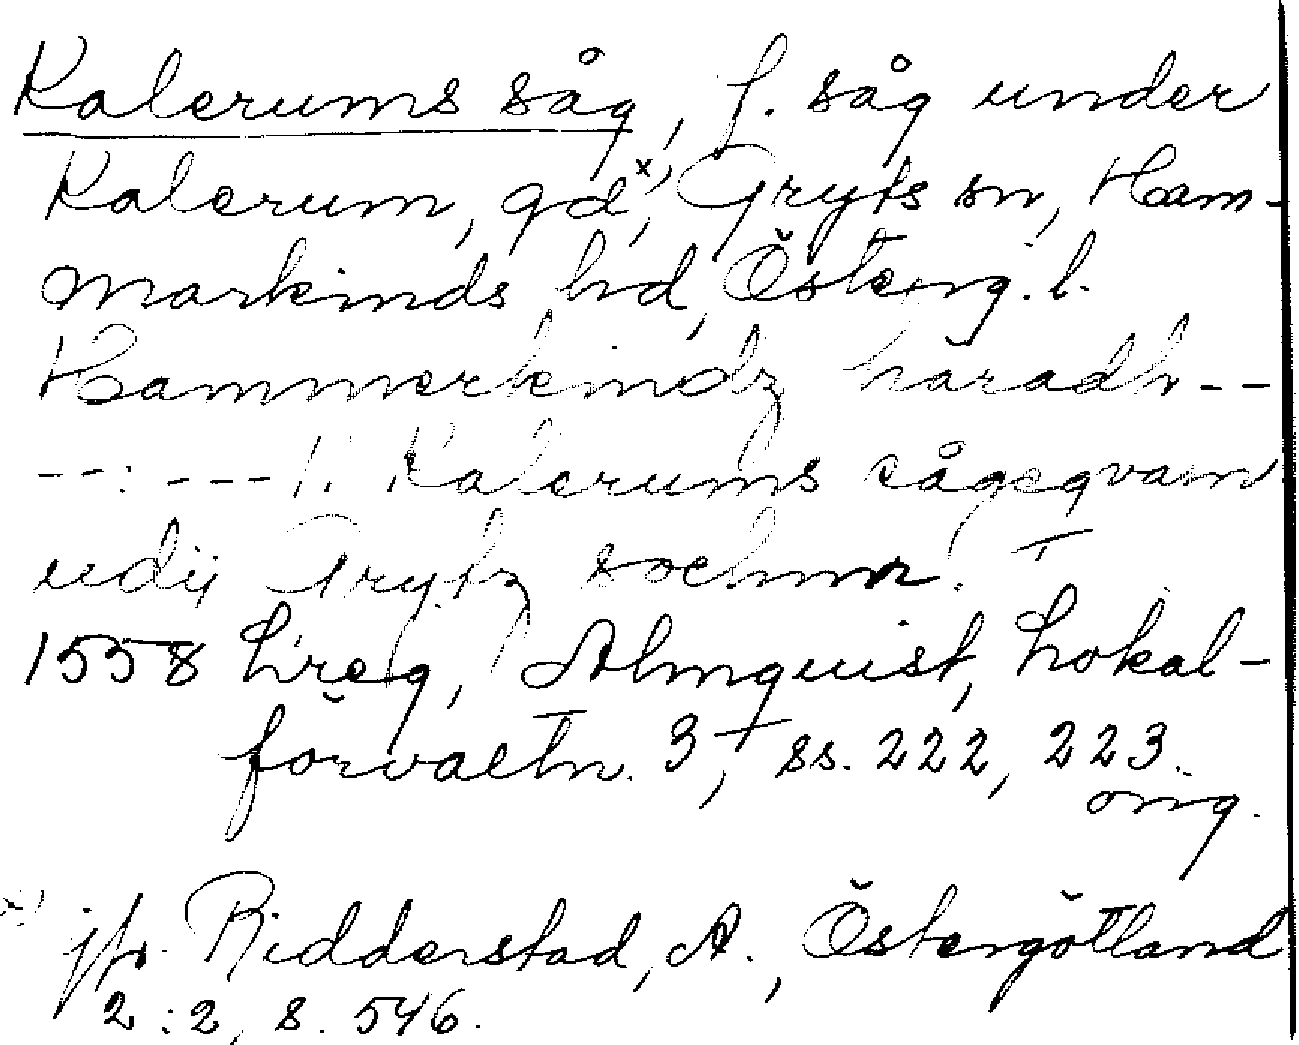 Kalerums såg, f. såg under
Kalerum, gd x), Gryts sn, Ham-
markinds hd, Österg. l.
Hammerkindz häradh --
--:---/: Kalerums sågeqvarn
udij Grytz sochnn.
1558 Lreg, Almquist, Lokal-
förvaltn. 3, ss. 222, 223.
orig.
x) jfr Ridderstad, A., Östergötland
2:2, s. 546.